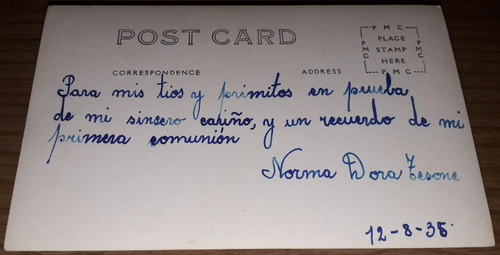 POST CARD
CORRESPONDENCE
ADDRESS
PMC
PLACE
STAMP
HERE
PMC
PMC
PMC
Para mis tios y primitos en prueba
de mi sinsero cariño, y un recuerdo de mi
primera comunión
Norma Dora Tesone
12-8-35